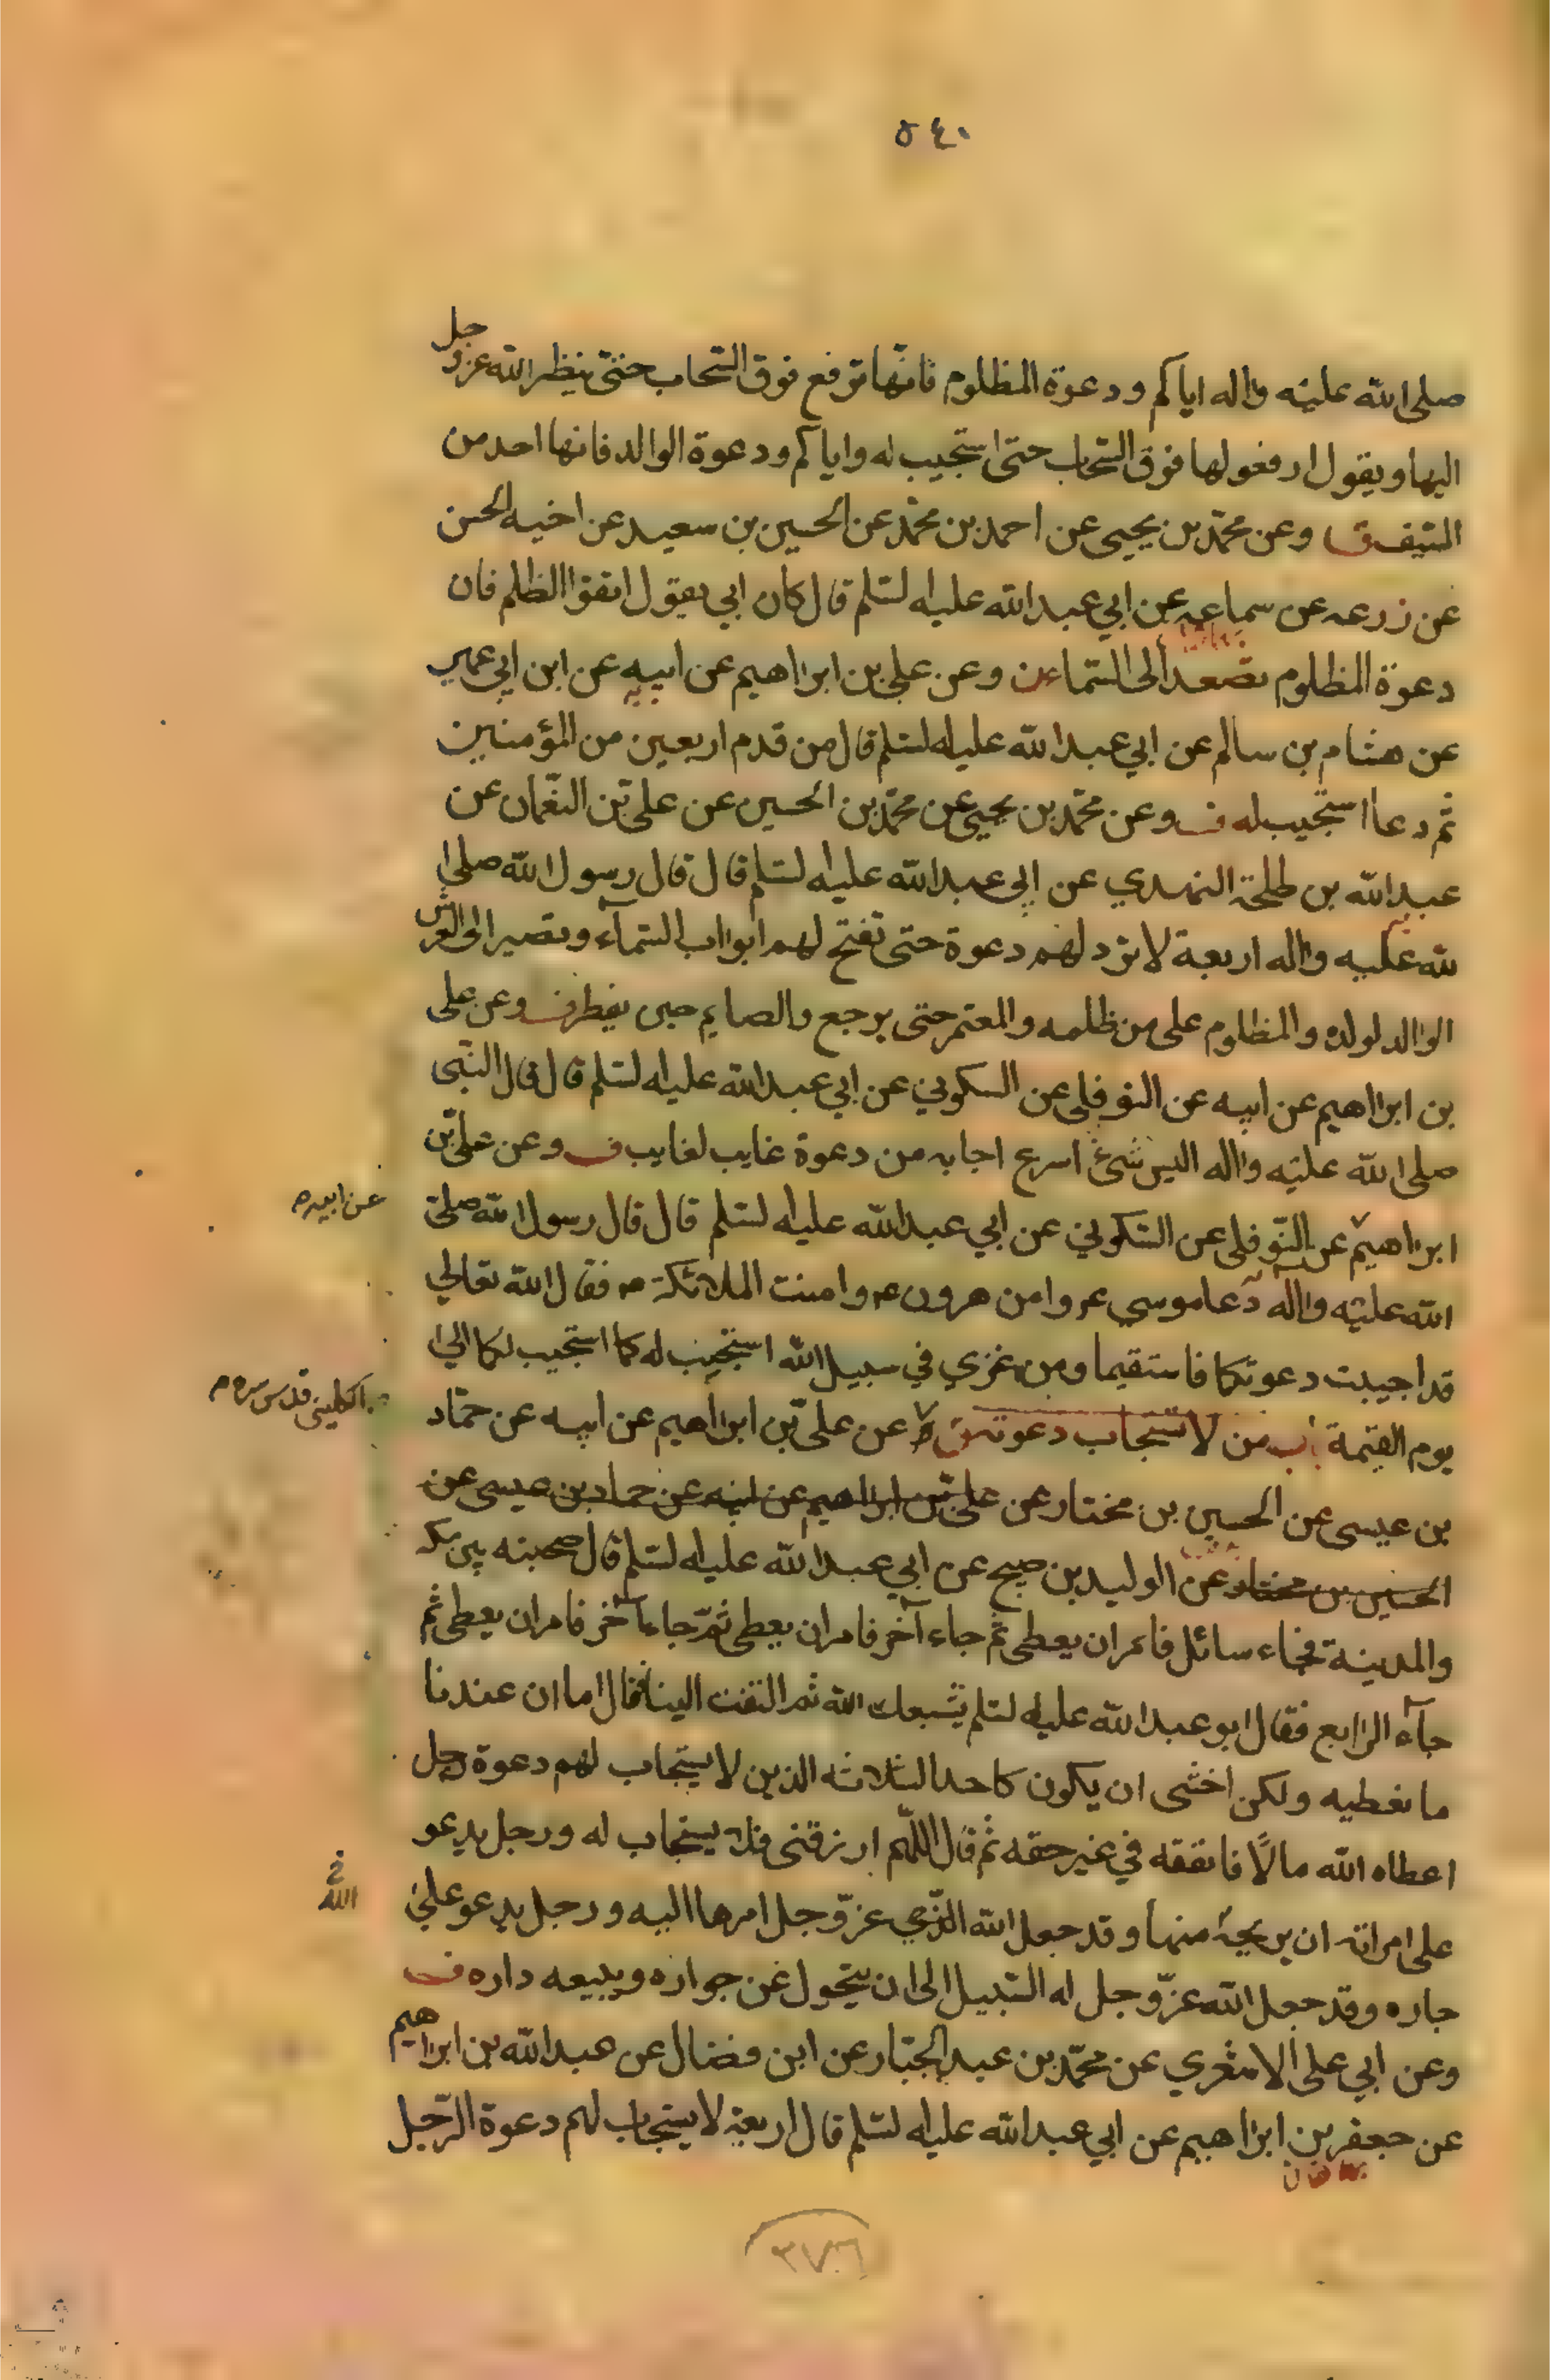 ٥٤٠
صلى الله عليه واله اياكم ودعوة المظلوم فانّها ترفع فوق السّحاب حتّى ينظر الله عزوجل
اليها ويقول ارفعولها فوق السّحاب حتى استجيب له واياكم ودعوة الوالد فانها احد من
السّيف وعن محمّد بن يحيى عن احمد بن محمّد عن الحسين بن سعيد عن اخيه الحسن
عن زرعه عن سماعه عن ابي عبد الله عليه السّلم قال كان ابي يقول اتقوا الظلم فان
دعوة المظلوم تصعد الى السّماء وعن علي بن ابراهيم عن ابيه عن ابن ابي عمير
عن هشام بن سالم عن ابي عبد الله عليه السّلم قال من قدم اربعين من المؤمنين
ثم دعا استجيب له ف وعن محمّد بن يحيى عن محمّد بن الحسين عن علي بن النعّمان عن
عبد الله بن طلحة النهدي عن ابي عبد الله عليه السّلم قال قال رسول الله صلى ا
لله عليه واله اربعة لا ترد لهم دعوة حتى تفتح لهم ابواب السّمآء وتصير الى العرش
الوالد لولده والمظلوم على من ظلمه والمعتمر حتى يرجع والصايم حتى يفطر ف وعن على
بن ابراهيم عن ابيه عن النوفلى عن السكوني عن ابي عبد الله عليه السّلم قال قال النّبى
صلى الله عليه واله اليس شئ اسرع اجابه من دعوة غايب لغايب ف وعن علىّ بن
ابراهيم عن النّوفلى عن السّكوني عن ابي عبد الله عليه السّلم قال قال رسول الله صلى
عن ابيه
الله عليه واله دعا موسى ع وامن هرون ع وامنت الملائكة فقال الله تعالى
قد اجيبت دعوتكما فاستقيما ومن غزي في سبيل الله استجيب له كما استجيب لكما الى
يوم القيمة باب من لا تستجاب دعوته عن علىّ بن ابراهيم عن ابيه عن حمّاد
الكلينى قدس سره
بن عيسى عن الحسين بن مختار عن علىّ بن ابراهيم عن ابيه عن حماد بن عيسى عن
الحسين بن مختار عن الوليد بن صبيح عن ابي عبد الله عليه السّلم قال صحبته بين مكه
والمدينة فجاء سائل فامر ان يعطى ثم جاء آخر فامر ان يعطى ثمّ جاء آخر فامر ان يعطى ثم
جآء الرابع فقال ابو عبد الله عليه السلم يشبعك الله ثم التفت الينا فقال اما ان عندنا
ما نعطيه ولكن اخشى ان يكون كاحد الثلاثه الذين لا يستجاب لهم دعوة رجل
اعطاه الله مالًا فانفقه في غير حقه ثم قال اللّهم ارزقنى فلا يستجاب له ورجل يدعو
على امراته ان يريحه منها وقد جعل الله الذي عزّوجل امرها اليه ورجل يدعو على
جاره وقد جعل الله عزّوجل له السّبيل الى ان يتحول عن جواره ويبيعه داره ف
وعن ابي على الاشعري عن محمّد بن عبد الجبّار عن ابن فضال عن عبد الله بن ابراهيم
عن جعفر بن ابراهيم عن ابي عبد الله عليه السّلم قال اربعة لا يستجاب لهم دعوة الرّجل